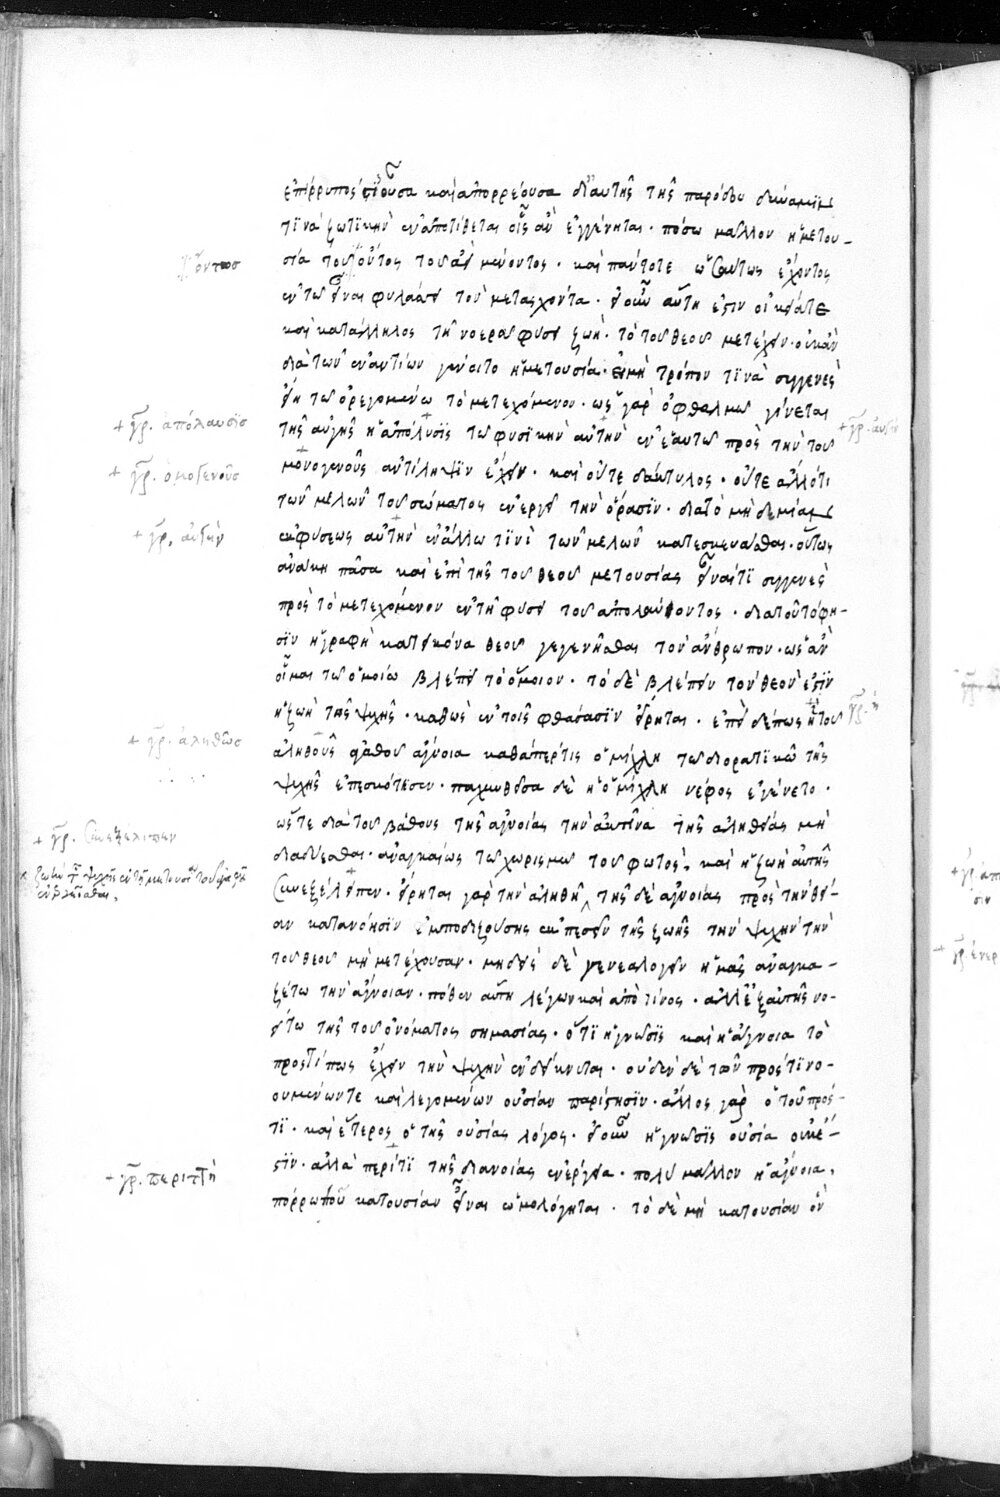 ἐπίρρυτος οὖσα καὶ ἀπορρέουσα δι' αὐτῆς τῆς παρόδου δύναμιν
τινὰ ζωτικὴν ἐναποτίθεται οἷς ἂν ἐγγένηται· πόσω μᾶλλον ἡ μετου-
σία τοῦ ὄντος τοῦ ἀεὶ μένοντος· καὶ πάντοτε ὡσαύτως ἔχοντος
ἐν τῶ εἶναι φυλάσσει τὸν μετασχόντα· εἰ οὖν αὕτη ἐστὶν οἰκεία τε
καὶ κατάλληλος τῆ νοερᾶ φύσει ζωὴ· τὸ τοῦ θεοῦ μετέχειν· οὐκ ἂν
διὰ τῶν ἐναντίων γένοιτο ἡ μετουσία· εἰ μὴ τρόπον τινὰ συγγενὲς
εἴη τῶ ὀρεγομένω τὸ μετεχόμενον· ὡς γὰρ ὀφθαλμῶ γίνεται
τῆς αὐγῆς ἡ ἀπόλυσις τῶ φυσικὴν αὐτὴν ἐν ἑαυτῶ πρὸς τὴν τοῦ
μονογενοῦς ἀντίληψιν ἔχειν· καὶ οὔτε δάκτυλος· οὔτε ἄλλό τι
τῶν μελῶν τοῦ σώματος ἐνεργεῖ τὴν ὅρασιν· διὰ τὸ μηδεμίαν
ἐκ φύσεως αὐτὴν ἐν ἄλλω τινὶ τῶν μελῶν κατεσκευάσθαι· οὕτως
ἀνάγκη πᾶσα καὶ ἐπὶ τῆς τοῦ θεοῦ μετουσίας εἶναί τι συγγενὲς
πρὸς τὸ μετεχόμενον ἐν τῆ φύσει τοῦ ἀπολαύοντος· διὰ τοῦτό φη-
σιν ἡ γραφὴ κατ' εἰκόνα θεοῦ γεγενῆσθαι τὸν ἄνθρωπον· ὡς ἂν
οἶμαι τῶ ὁμοίω βλέπει τὸ ὅμοιον· τὸ δὲ βλέπειν τὸν θεὸν ἐστὶν
ἡ ζωὴ τῆς ψυχῆς· καθὼς ἐν τοῖς φθάσασιν εἴρηται· ἐπεὶ δέ πως ἡ τοῦ
ἀληθοῦς ἀγαθοῦ ἄγνοια καθάπέρ τις ὁμίχλη τῶ διορατικῶ τῆς
ψυχῆς ἐπεσκότησεν· παχυνθεῖσα δὲ ἡ ὁμίχλη νέφος ἐγένετο·
ὥστε διὰ τοῦ βάθους τῆς ἀγνοίας τὴν ἀκτῖνα τῆς ἀληθείας μὴ
διαδύεσθαι· ἀναγκαίως τῶ χωρισμῶ τοῦ φωτὸς, καὶ ἡ ζωὴ αὐτῆς
συνεξέλειπεν· εἴρηται γὰρ τὴν ἀληθῆ, τῆς δὲ ἀγνοίας πρὸς τὴν θεί-
αν κατανόησιν ἐμποδιζούσης ἐκπεσεῖν τῆς ζωῆς τὴν ψυχὴν τὴν
τοῦ θεοῦ μὴ μετέχουσαν· μηδεὶς δὲ γενεαλογεῖν ἡμᾶς ἀναγκα-
ζέτω τὴν ἄγνοιαν· πόθεν αὕτη λέγων καὶ ἀπὸ τίνος· ἀλλ' ἐξ αὐτῆς νο-
είτω τῆς τοῦ ὀνόματος σημασίας· ὅτι ἡ γνῶσις καὶ ἡ ἄγνοια τὸ
πρός τί πως ἔχειν τὴν ψυχὴν ἐνδείκνυται· οὐδὲν δὲ τῶν πρός τι νο-
ουμένων τε καὶ λεγομένων οὐσίαν παρίστησιν· ἄλλος γὰρ ὁ τοῦ πρός
τι· καὶ ἕτερος ὁ τῆς οὐσίας λόγος· εἰ οὖν ἡ γνῶσις οὐσία οὐκ ἔ-
στιν· ἀλλὰ περί τι τῆς διανοίας ἐνέργεια· πολὺ μᾶλλον ἡ ἄγνοια,
πόρρω που κατ' οὐσίαν εἶναι ὡμολόγηται· τὸ δὲ μὴ κατ' οὐσίαν ὂν
ὄντως
+ γρ. ἀπόλαυσις
+ γρ. ὁμογενοῦς
+ γρ. αὐτὴν
+ γρ. ἀληθῶς
+ γρ. συνεξέλιπεν
+ γρ. περιττὴ